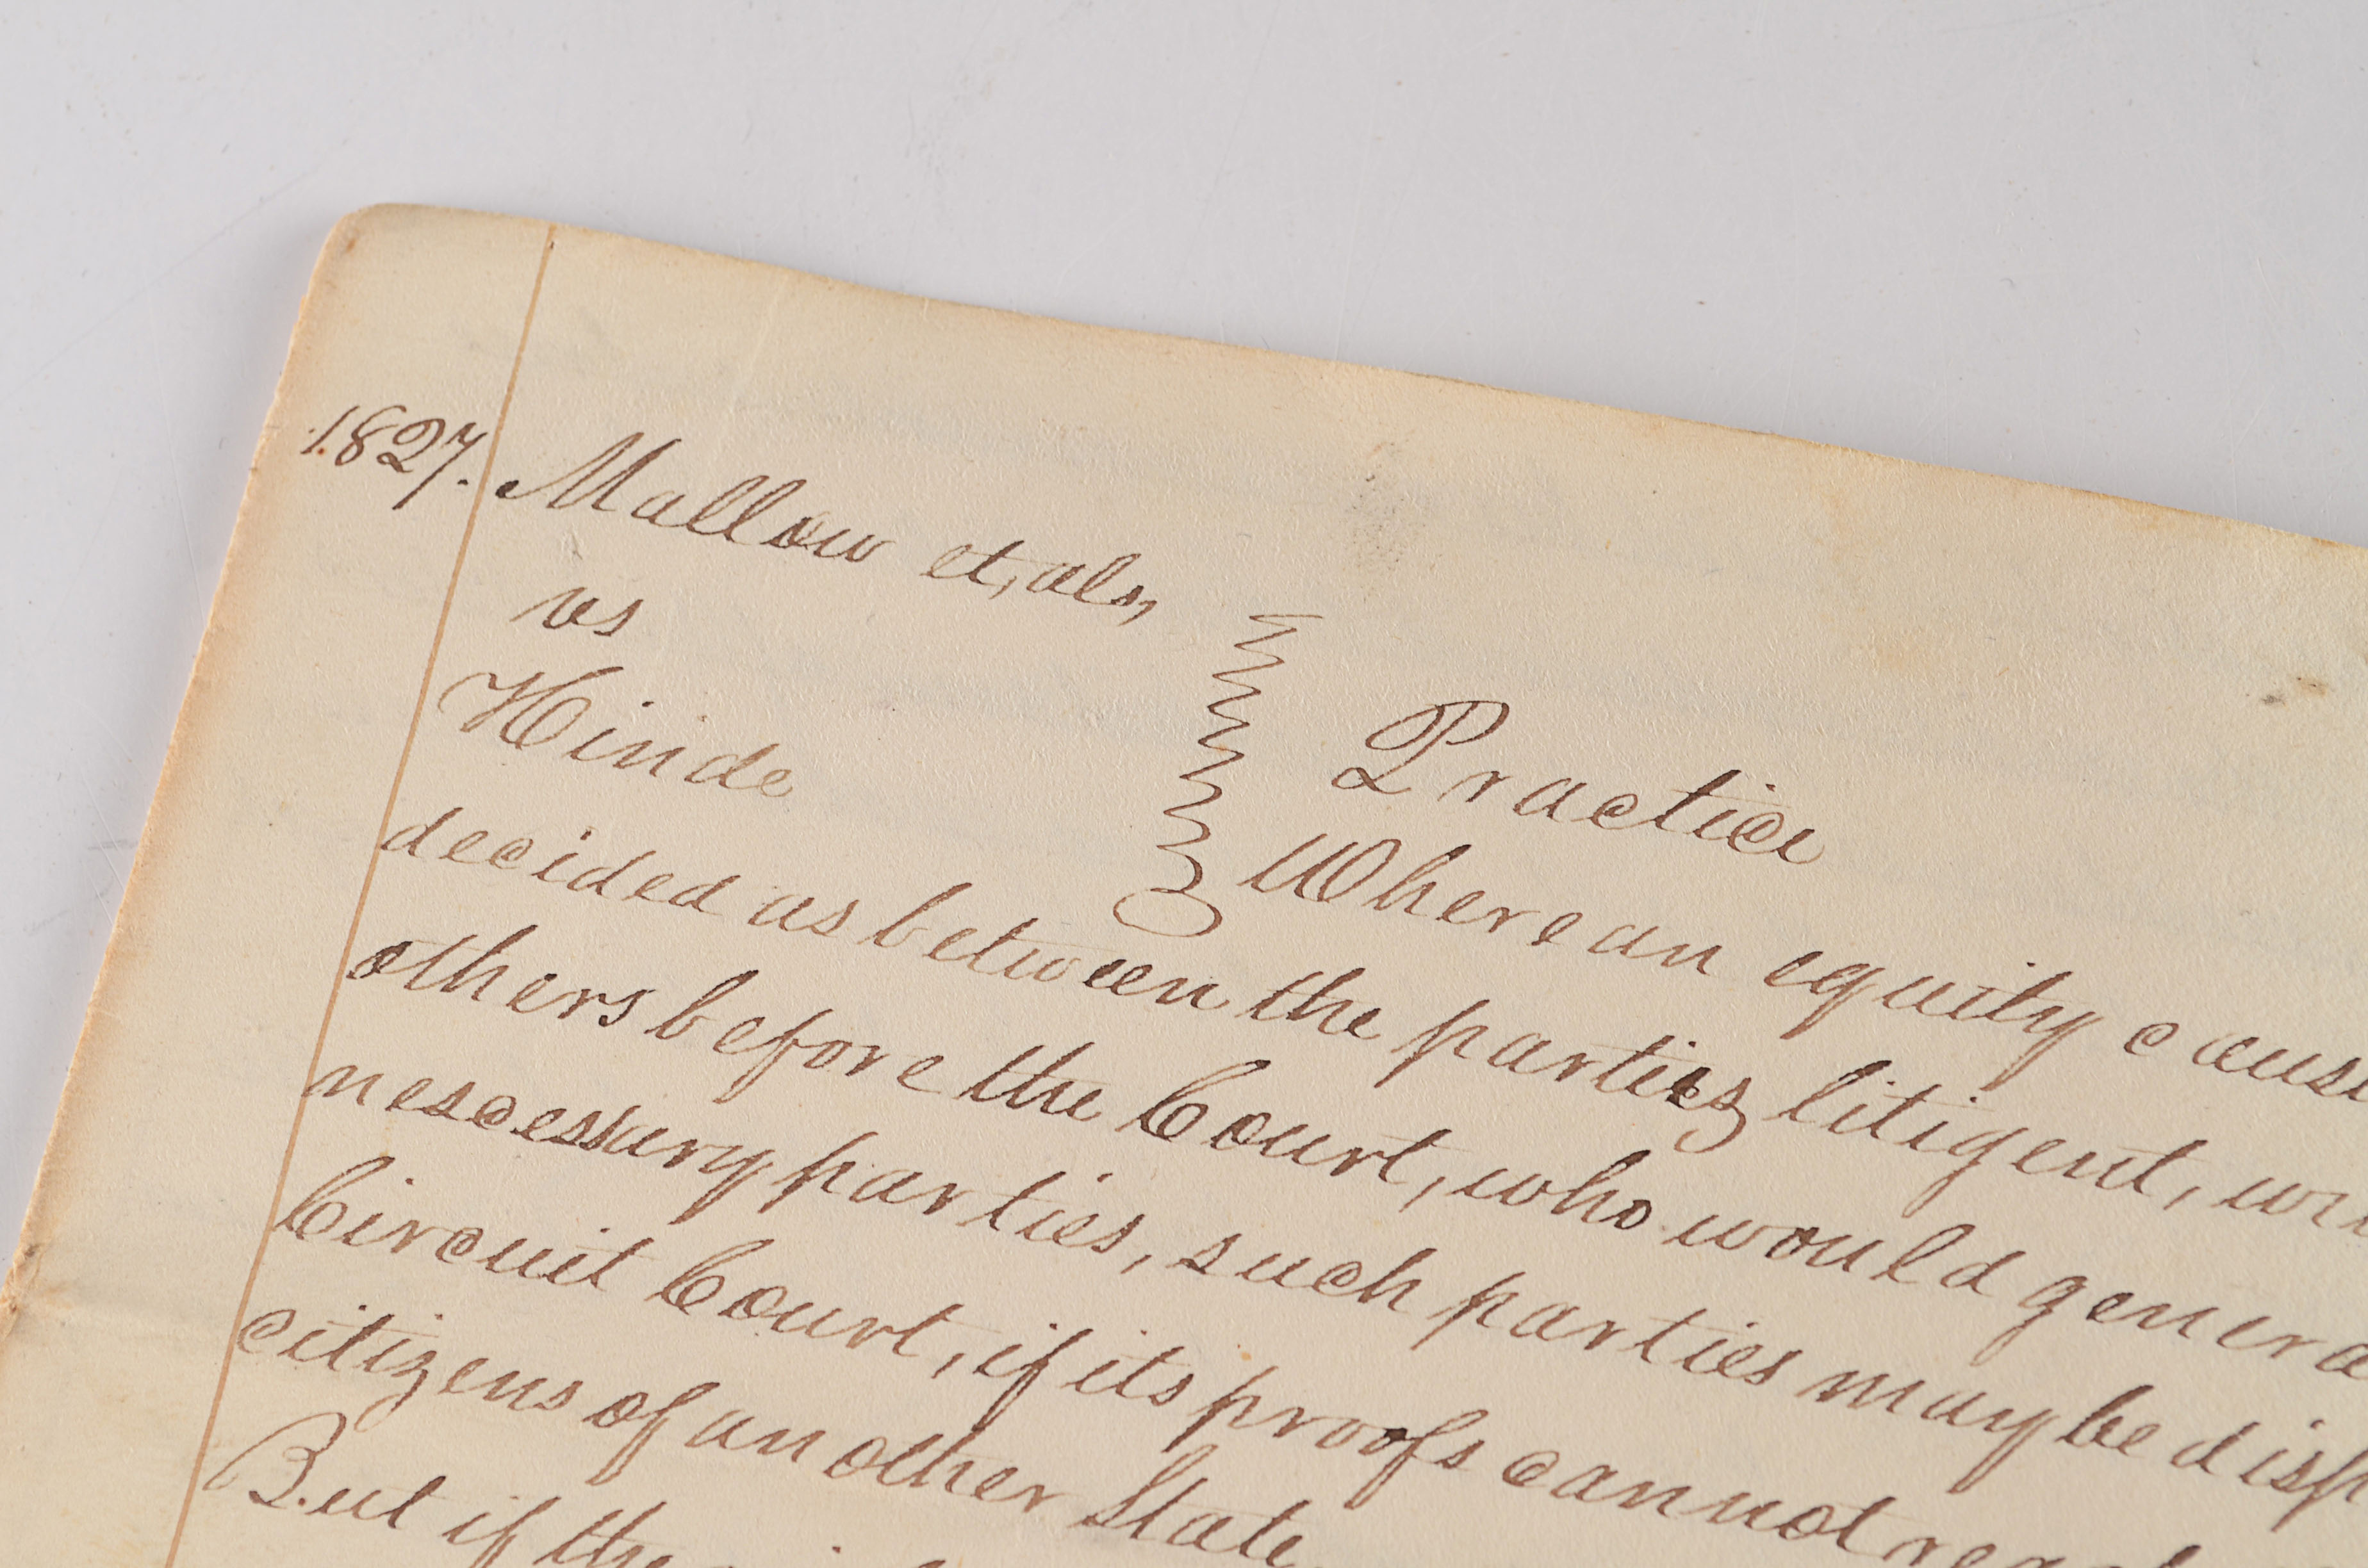 1827. Mallow et, als,
vs
Hinde
Practice
Where an equity cause
decided as between the parties litigent, wi
others before the Court, who would genera
nescessary parties, such parties may be disp
Circuit Court, if its proofs cannot rea
citizens of another State
But if the